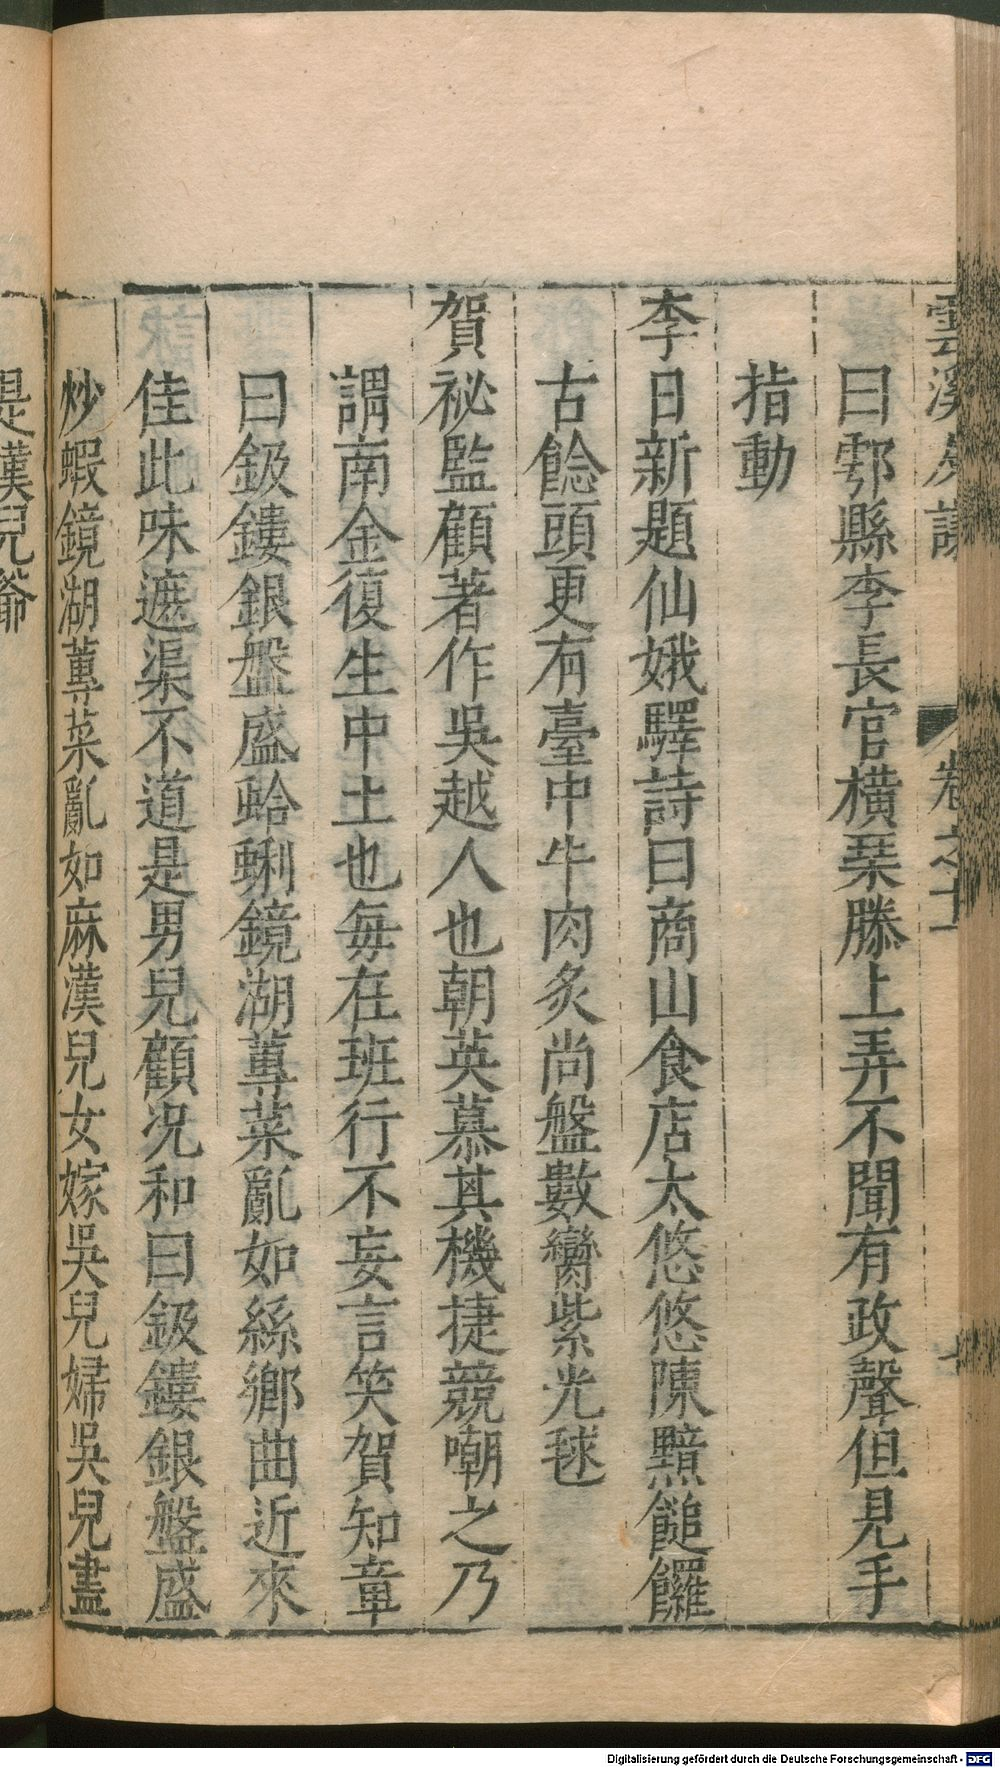 雲溪友議 卷之十一
曰鄠縣李長官橫琹膝上弄不聞有政聲但見手
指動
李日新題仙娥驛詩曰商山食店太悠悠陳䵟䭔饠
古餕頭更有臺中牛肉炙尚盤數臠紫光毬
賀祕監顧著作吳越人也朝英慕其機捷競嘲之乃
謂南金復生中土也每在班行不妄言笑賀知章
曰鈒鏤銀盤盛蛤蜊鏡湖蓴菜亂如絲鄉曲近來
佳此味遮渠不道是男兒顧况和曰鈒鏤銀盤盛
炒蝦鏡湖蓴菜亂如麻漢兒女嫁吳兒婦吳兒盡
是漢兒爺
Digitalisierung gefördert durch die Deutsche Forschungsgemeinschaft - DFG